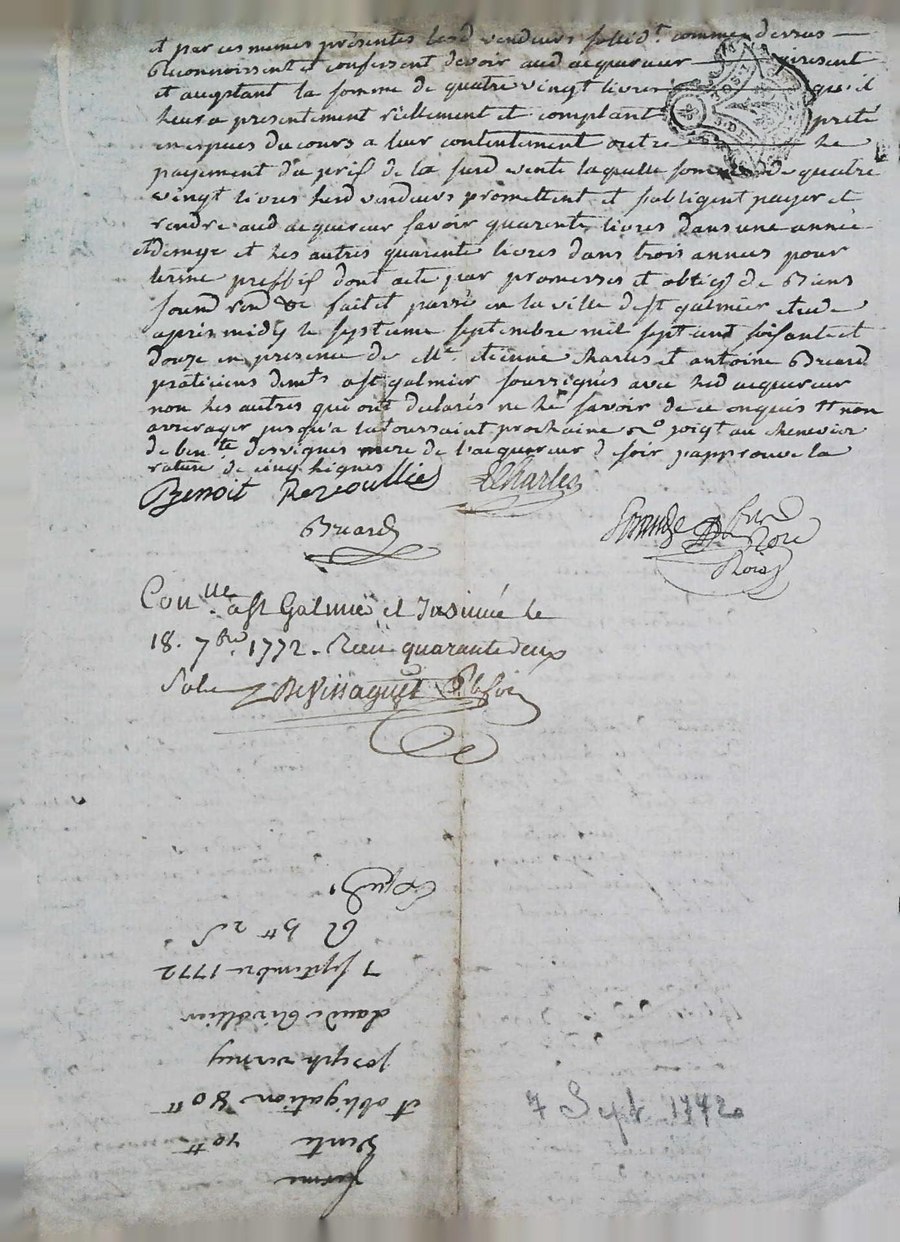 et par ces memes présentes lesd vendeurs sollid.t comme dessus
reconnoissent et confessent devoir aud acquereur present
et acceptant la somme de quatre vingt livres qu'il
leur a presentement réellement et comptant preté
en especes du cours a leur contentement outre le
payement du prix de la susd vente laquelle som de quatre
vingt livres lesd vendeurs promettent et sobligent payer et
rendre aud acquereur savoir quarente livres dans une année
et demye et les autres quarente livres dans trois annees pour
terme preffix dont acte par promesses et oblig de Biens
soum ren &c fait et passé en la ville de st galmier etude
apres midy le septieme septembre mil sept cent soisante et
douze en presence de Me. etienne charles et antoine Bréard
praticiens demts a st galmier soussignés avec led acquereur
non les autres qui ont declarés ne le savoir de ce enquis non
arrerager jusqu'a la toussaint prochaine joigt au chenevier
de ben.te desvignes mere de l'acquereur de soir japprouve la
rature de cinq lignes
Benoit Charles
Breard
Con.lle a st Galmier et Insinué le
18. 7bre. 1772. Reçu quarante deux
Sols
7 Sept. 1772
ferme
Vente 70 tt
et obligation 80 tt
joseph verney
claude
7 septembre 1772